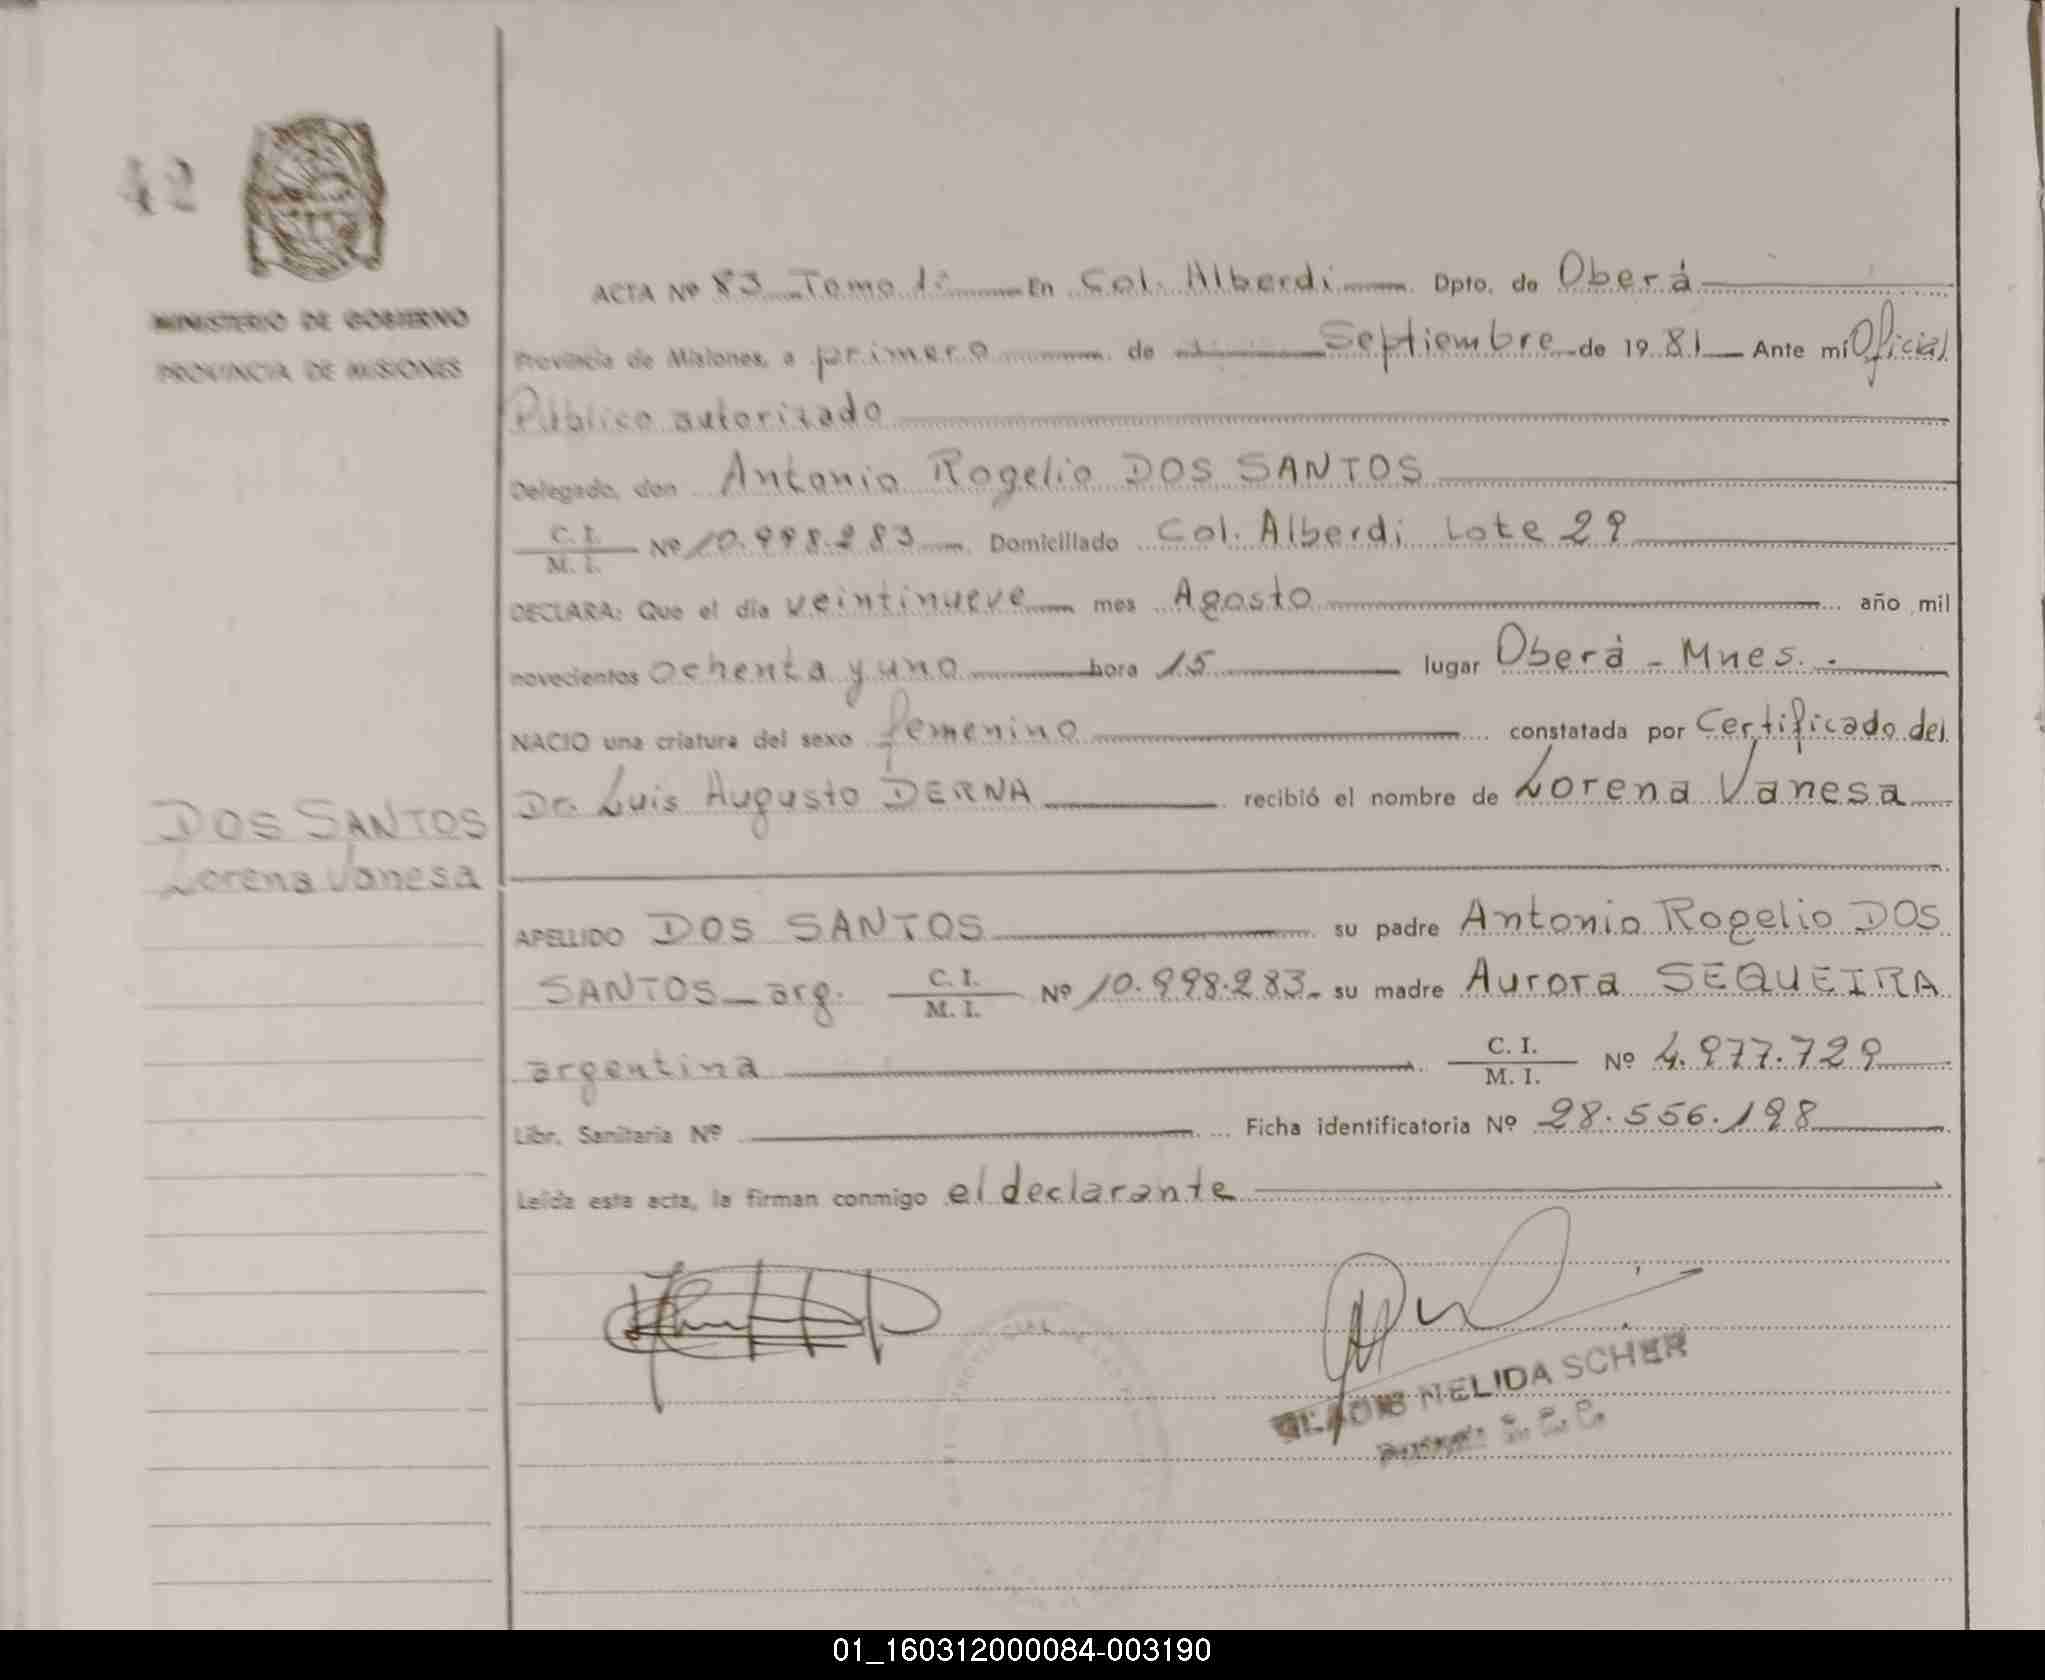 42
MINISTERIO DE GOBIERNO
PROVINCIA DE MISIONES
ACTA Nº 83 Tomo 1º En Col. Alberdi Dpto. de Oberá
Provincia de Misiones, a primero de Septiembre de 1981 Ante mi Oficial
Público autorizado
Delegado, don Antonio Rogelio DOS SANTOS
C. I.
M. I. Nº 10.998.283 Domiciliado Col. Alberdi Lote 29
DECLARA: Que el día veintinueve mes Agosto año mil
novecientos ochenta y uno hora 15 lugar Oberá - Mnes. -
NACIO una criatura del sexo femenino constatada por Certificado del
Dr. Luis Augusto DERNA recibió el nombre de Lorena Vanesa
DOS SANTOS
Lorena Vanesa
APELLIDO DOS SANTOS su padre Antonio Rogelio DOS
SANTOS - arg. C. I.
M. I. Nº 10.998.283 - su madre Aurora SEQUEIRA
argentina C. I.
M. I. Nº 4.977.729
Libr. Sanitaria Nº Ficha identificatoria Nº 28.556.198
Leída esta acta, la firman conmigo el declarante
GLADIS NELIDA SCHER
01_160312000084-003190